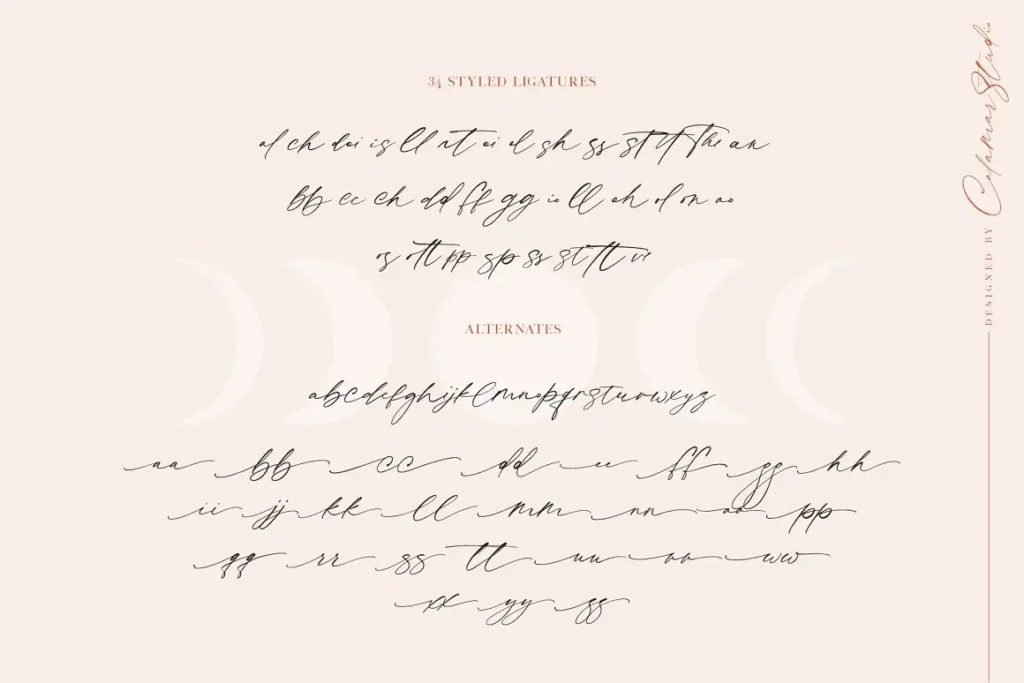 34 STYLED LIGATURES
al ch dei is ll nt ei el sh ss st tf The an
bb cc ch dd ff gg io ll oh ol on oo
os ott pp sp ss st tt vr
ALTERNATES
abcdefghijklmnopqrstuvwxyz
aa bb cc dd ee ff gg hh
ii jj kk ll mm nn oo pp
qq rr ss tt uu vv ww
xx yy zz
DESIGNED BY Calamar Studio